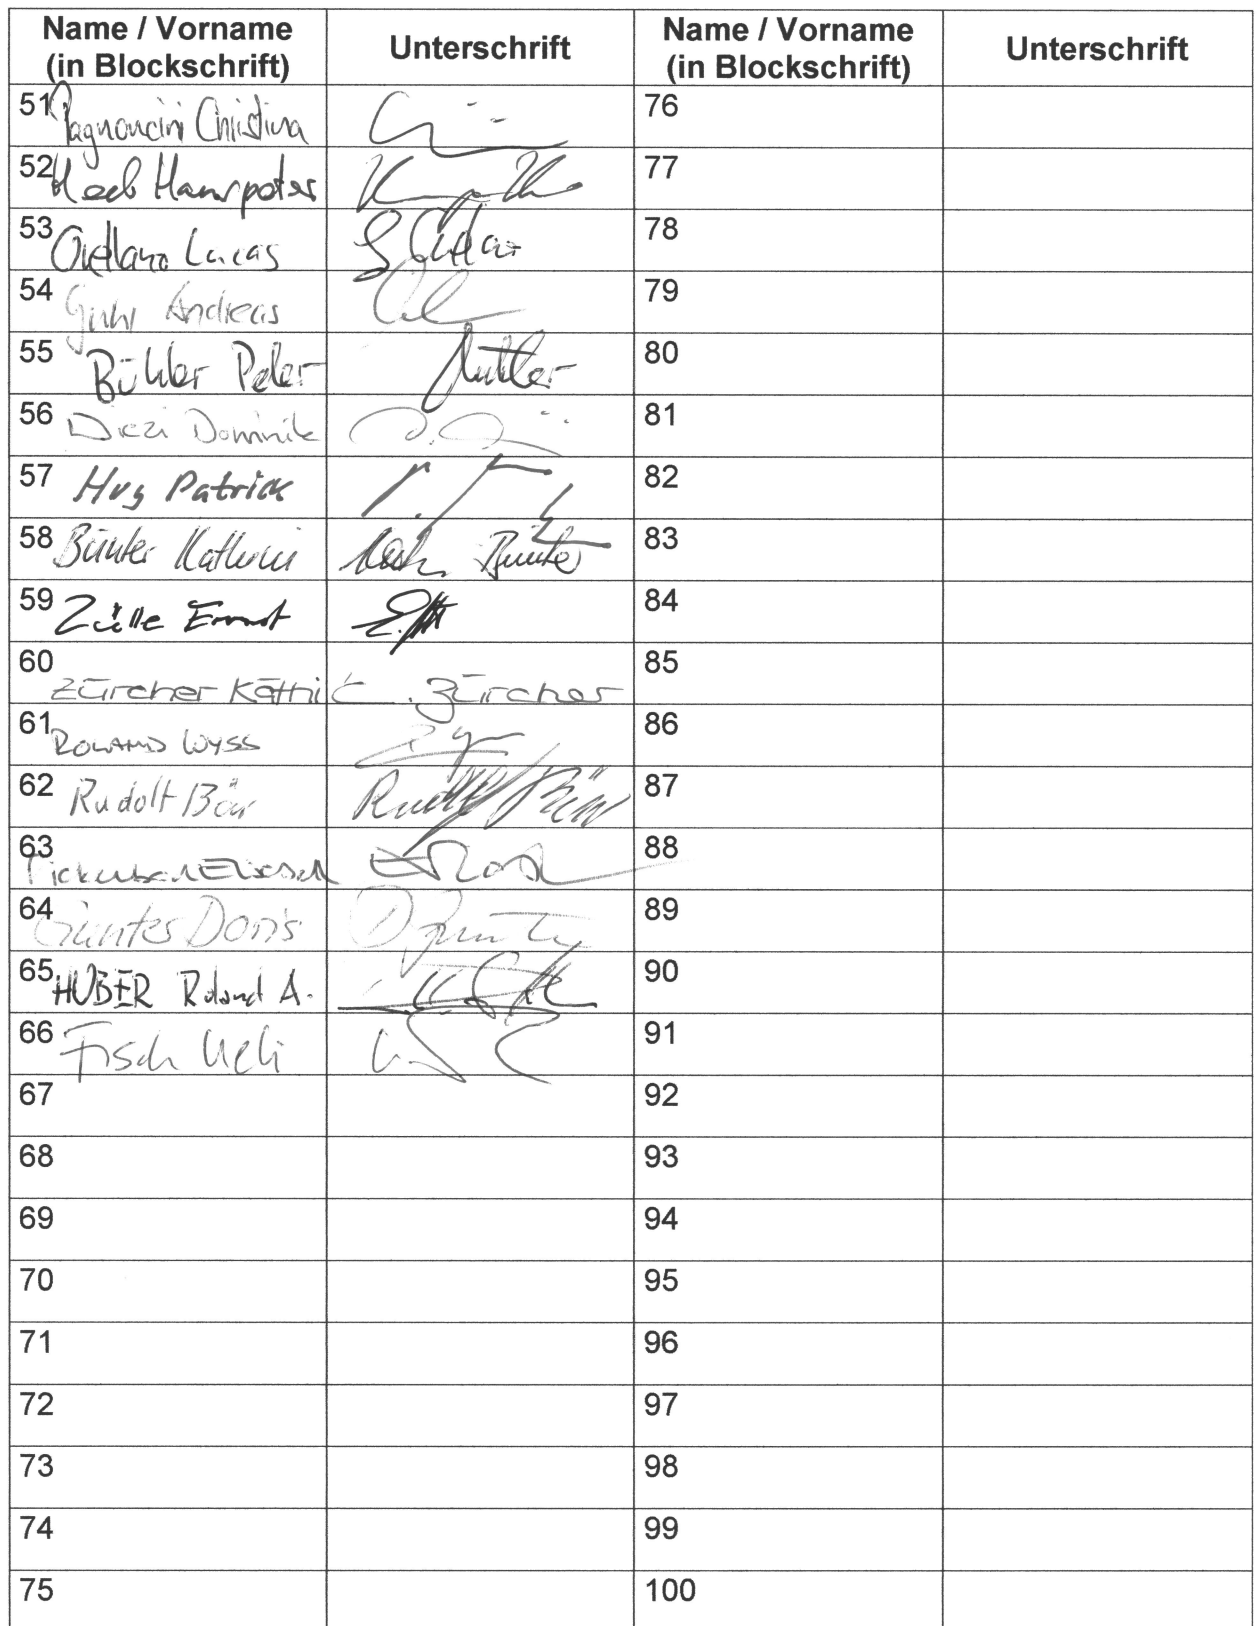 Name / Vorname Unterschrift Name / Vorname Unterschrift
(in Blockschrift) (in Blockschrift)
51 Pagnoncini Christina 76
52 Hanspeter 77
53 Orellano Lucas 78
54 Andreas 79
55 Bühler Peter Bühler 80
56 Diezi Dominik 81
57 Hug Patrick 82
58 Bünter Kathrin Bünter 83
59 Zülle Ernst 84
60 Zürcher Käthi K. Zürcher 85
61 ROLAND WYSS 86
62 Rudolf Bär Rudolf Bär 87
63 88
64 Günter Doris D Günter 89
65 HUBER Roland A. 90
66 Fisch Ueli 91
67 92
68 93
69 94
70 95
71 96
72 97
73 98
74 99
75 100